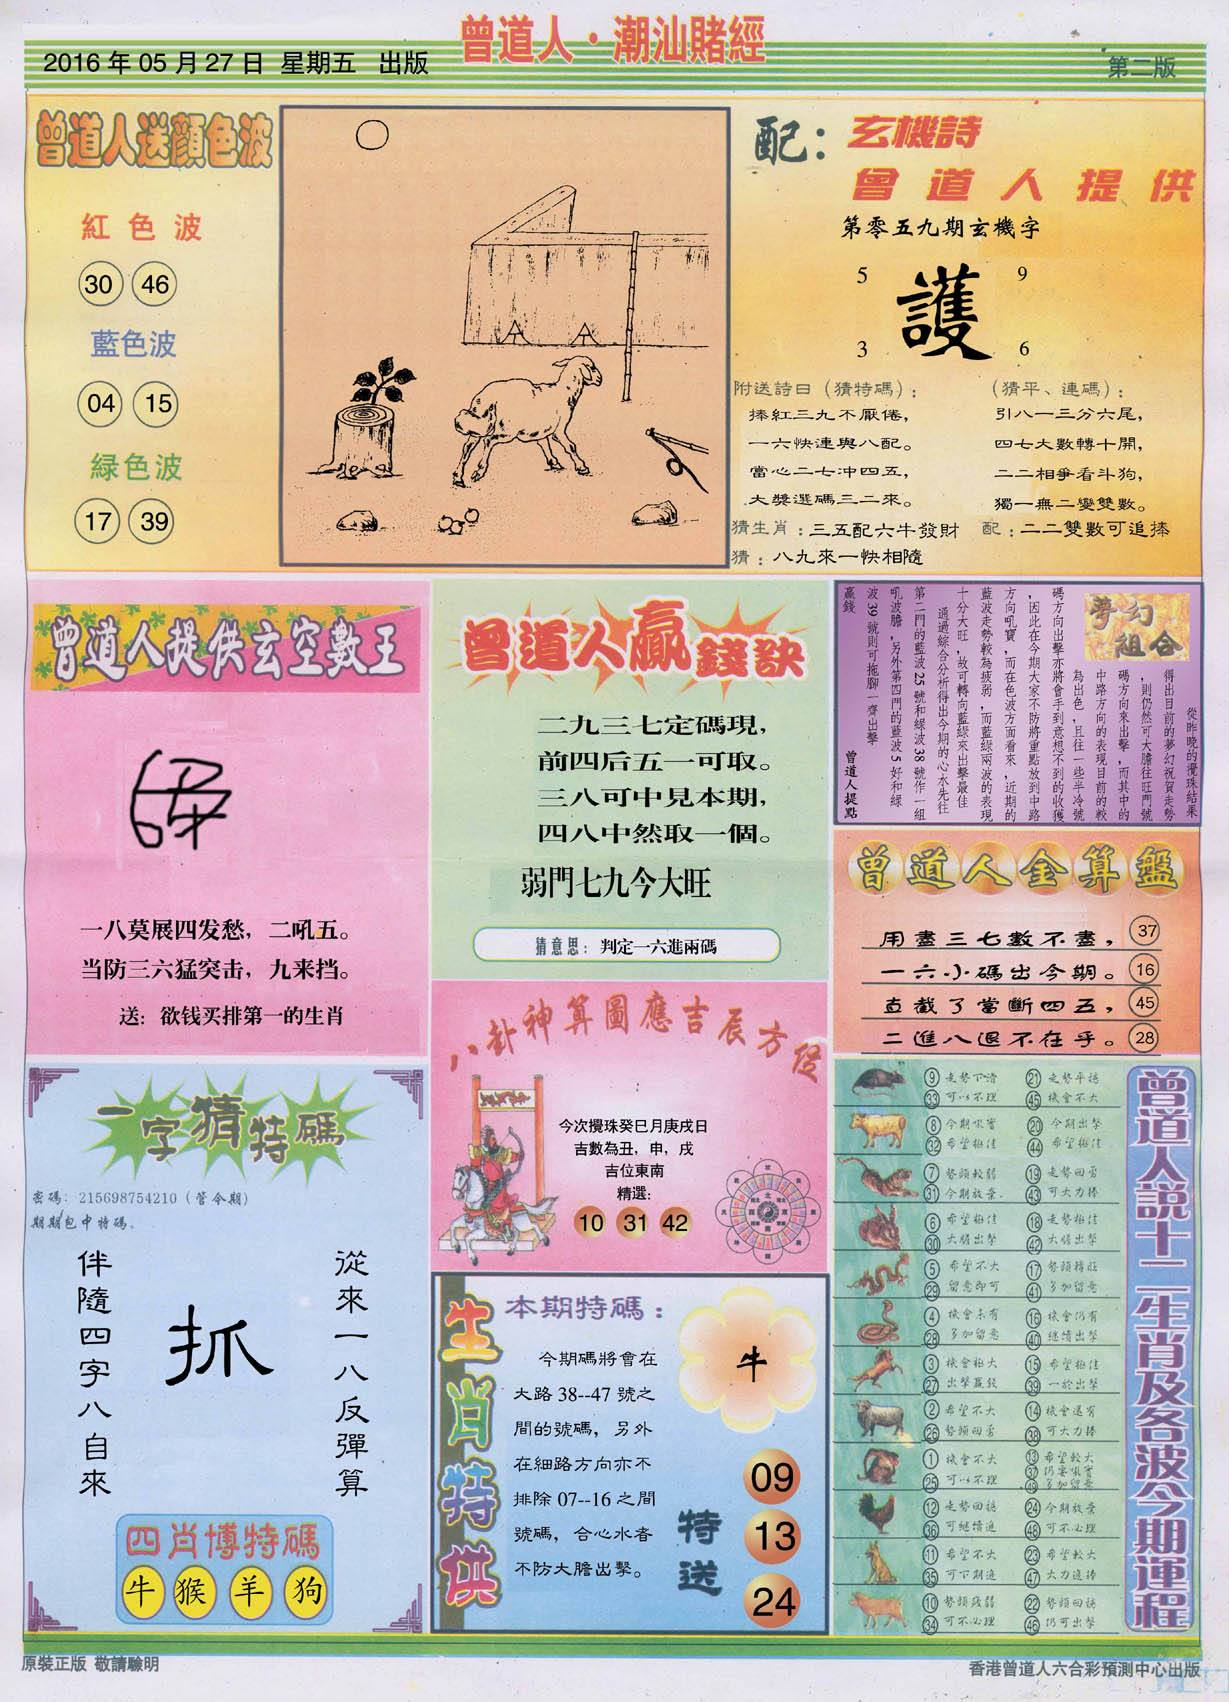 曾道人·潮汕賭經
2016 年 05 月 27 日 星期五 出版
第二版
曾道人送顏色波
紅色波
30 46
藍色波
04 15
緑色波
17 39
配：玄機詩
曾道人提供
第零五九期玄機字
5 9
護
3 6
附送詩曰（猜特碼）：
捧紅三九不厭倦，
一六快連與八配。
當心二七沖四五，
大獎選碼三二來。
（猜平、連碼）：
引八一三分六尾，
四七大數轉十開，
二二相爭看斗狗，
獨一無二變雙數。
猜生肖：三五配六牛發財
配：二二雙數可追捧
猜：八九來一快相隨
曾道人提供玄空數王
一八莫展四发愁，二吼五。
当防三六猛突击，九来挡。
送：欲钱买排第一的生肖
曾道人贏錢訣
二九三七定碼現，
前四后五一可取。
三八可中見本期，
四八中然取一個。
弱門七九今大旺
猜意思：判定一六進兩碼
夢幻
組合
從昨晚的攪珠結果
得出目前的夢幻祝賀走勢
，則仍然可大膽往旺門號
碼方向來出擊，而其中的
中路方向的表現目前的較
為出色，且往一些半冷號
碼方向出擊亦將會手到意想不到的收獲
，因此在今期大家不防將重點放到中路
方向吼寶，而在色波方面看來，近期的
藍波走勢較為疲弱，而藍綠兩波的表現
十分大旺，故可轉向藍綠來出擊最佳
通過綜合分析得出今期的心水先往
第二門的藍波 25 號和綠波 38 號作一組
吼波膽，另外第四門的藍波 5 好和綠
波 39 號則可拖腳一齊出擊
贏錢
曾道人提點
曾道人金算盤
用盡三七數不盡， 37
一六小碼出今期。 16
直截了當斷四五， 45
二進八退不在乎。 28
八卦神算圖應吉辰方位
今次攪珠癸巳月庚戌日
吉數為丑，申，戌
吉位東南
精選:
10 31 42
一字猜特碼
密碼：215698754210（管令期）
期期包中特碼。
從來一八反彈算
抓
伴隨四字八自來
四肖博特碼
牛 猴 羊 狗
生肖特供
本期特碼：
今期碼將會在
大路 38--47 號之
間的號碼，另外
在細路方向亦不
排除 07--16 之間
號碼，合心水者
不防大膽出擊。
牛
特送
09
13
24
曾道人説十二生肖及各波今期運程
9 走勢下滑 21 走勢平穩
33 可以不理 45 機會不大
8 今期吼寶 20 今期出擊
32 希望極佳 44 希望極佳
7 勢頭較弱 19 走勢回勇
31 今期放棄. 43 可大力捧
6 希望極佳 18 走勢極佳
30 大膽出擊 42 大膽出擊
5 希望不大 17 勢頭轉旺
29 留意即可 41 多加留意
4 機會未有 16 機會仍有
28 多加留意 40 繼續出擊
3 機會極大 15 希望極佳
27 出擊贏錢 39 一於出擊
2 希望不大 14 機會還有
26 勢頭回勇 38 可大力捧
1 機會不大 13 希望較大
25 可以不理 37 仍要吼寶
49 多加留意
12 走勢回穩 24 今期放棄
36 可繼續追 48 可不必理
11 希望不大 23 希望較大
35 可下期追 47 大力追捧
10 勢頭疲弱 22 勢頭回穩
34 可不必理 46 仍可出擊
原裝正版 敬請驗明
香港曾道人六合彩預測中心出版